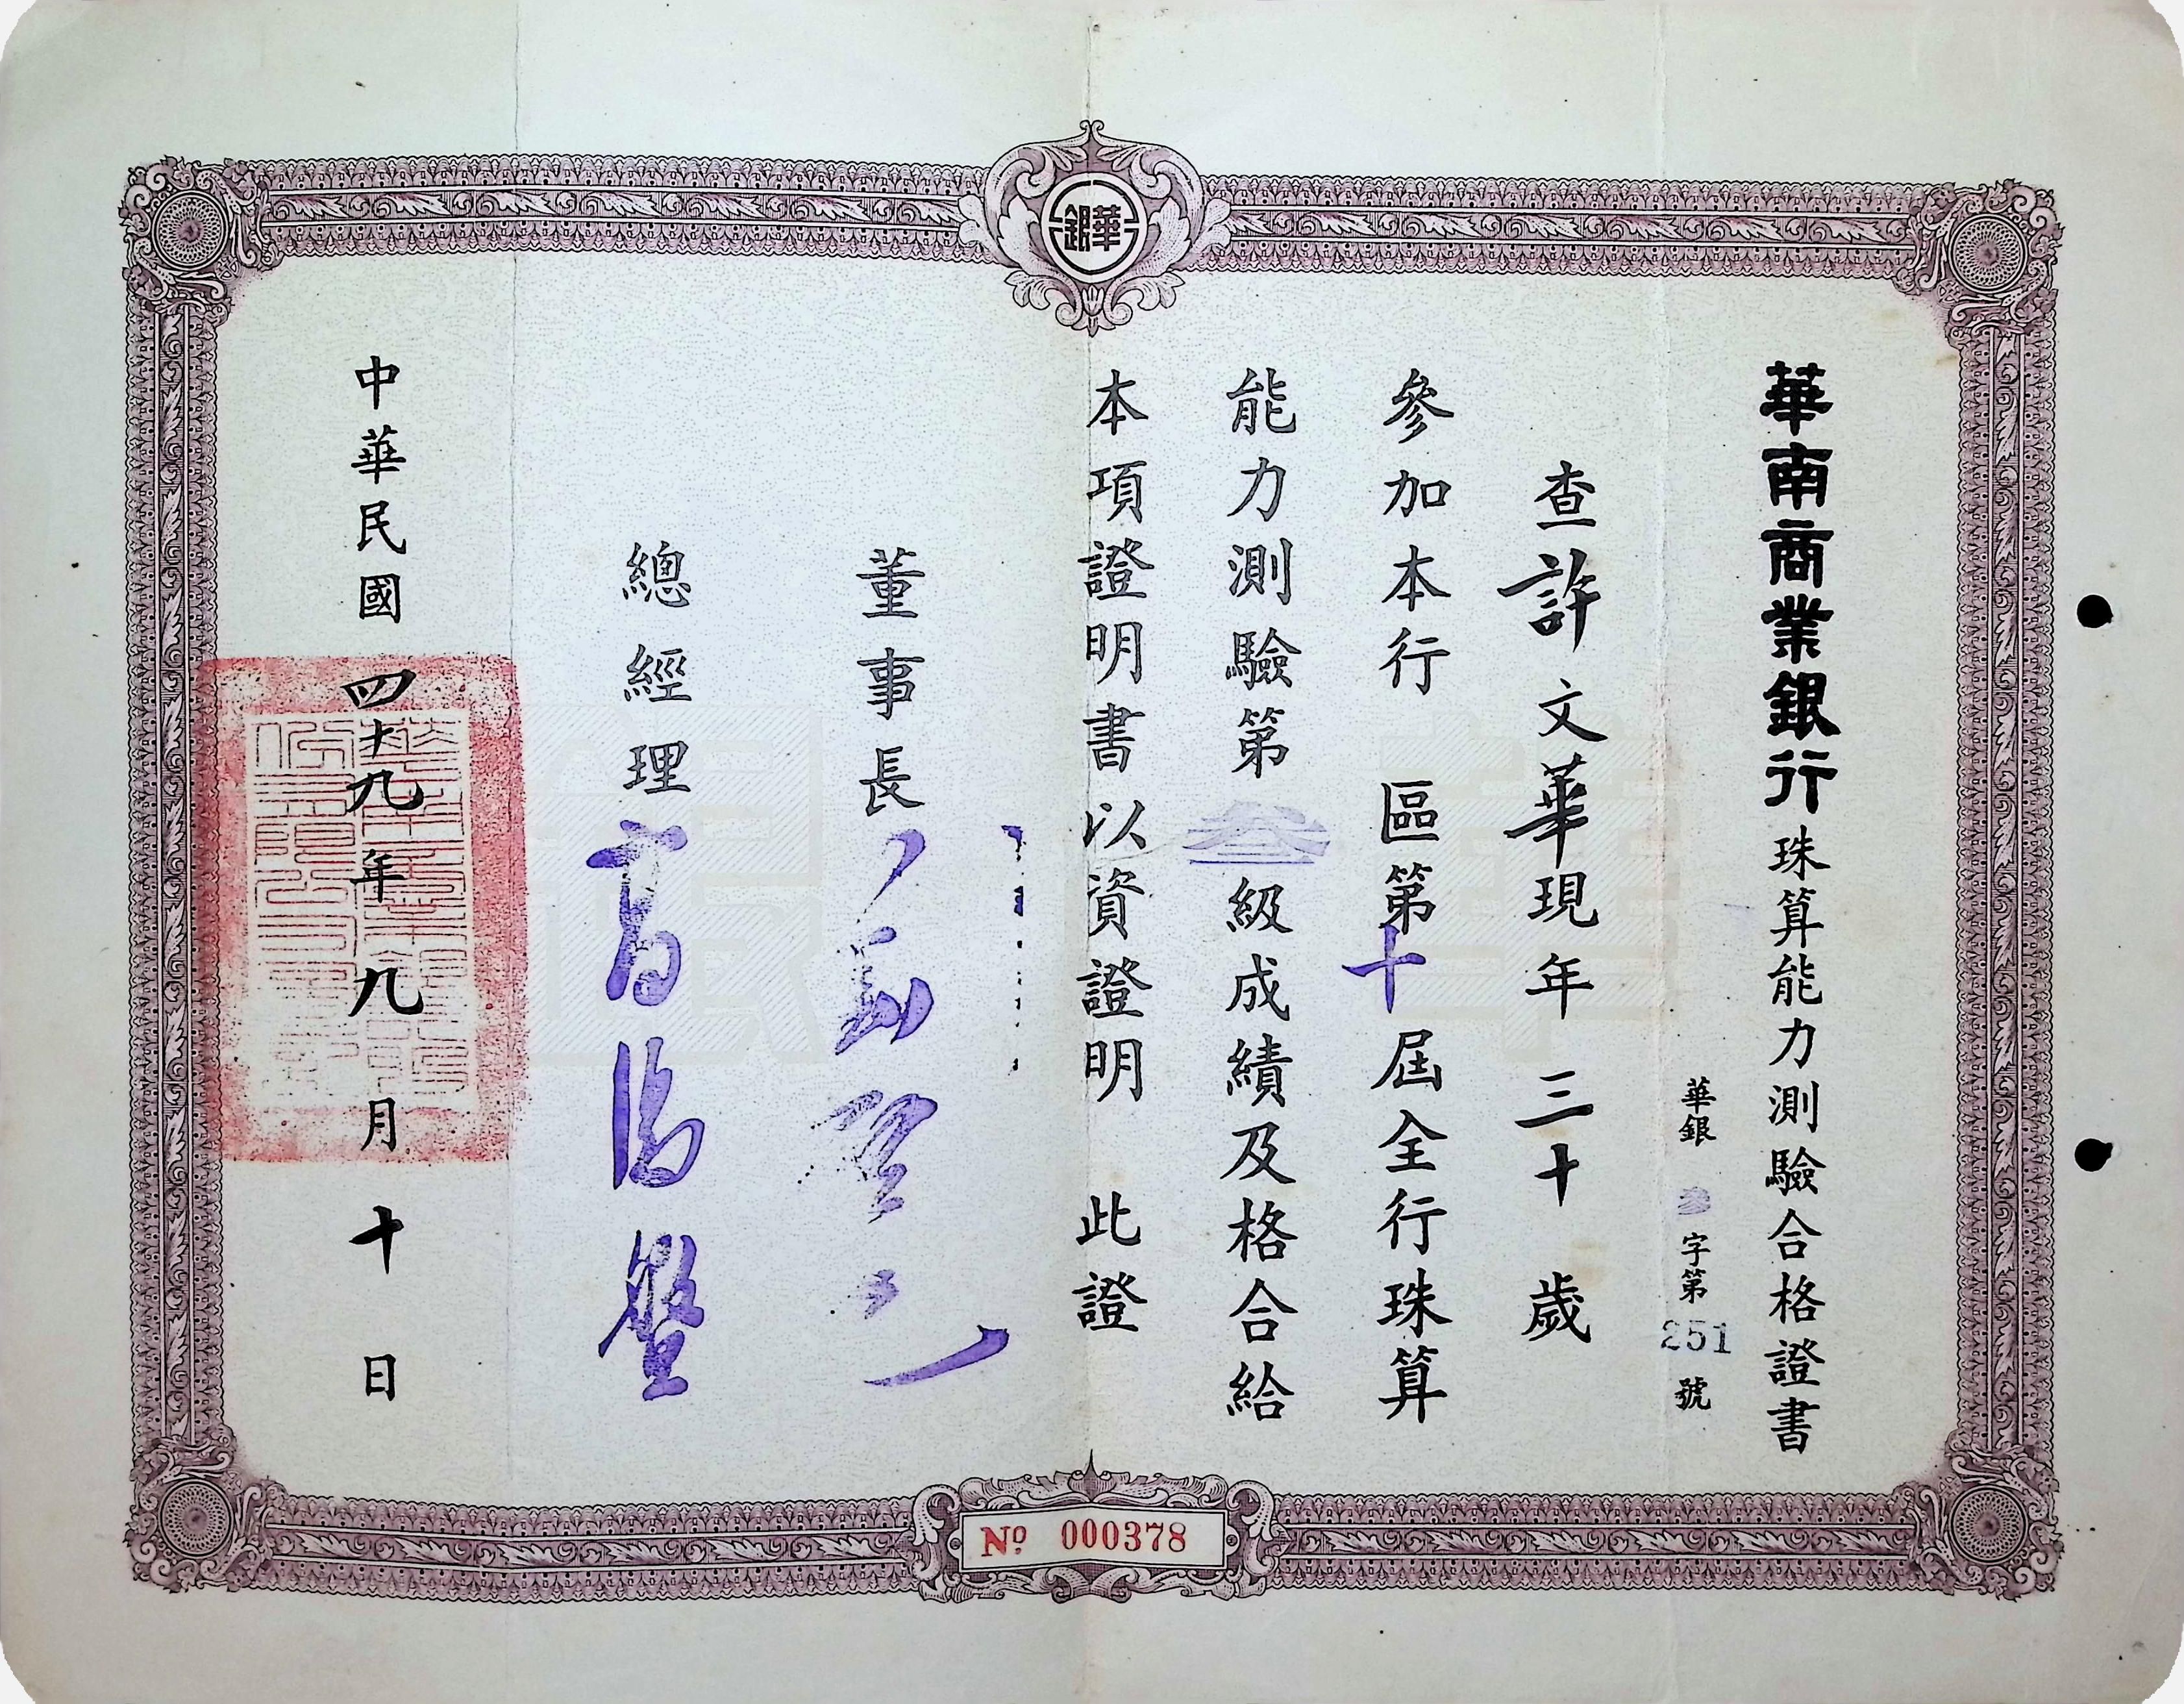 華南商業銀行珠算能力測驗合格證書
華銀叁字第251號
查許文華現年三十歲
參加本行 區第十屆全行珠算
能力測驗第叁級成績及格合給
本項證明書以資證明 此證
董事長
總經理 高湯盤
中華民國四十九年九月十日
銀華
Nº 000378